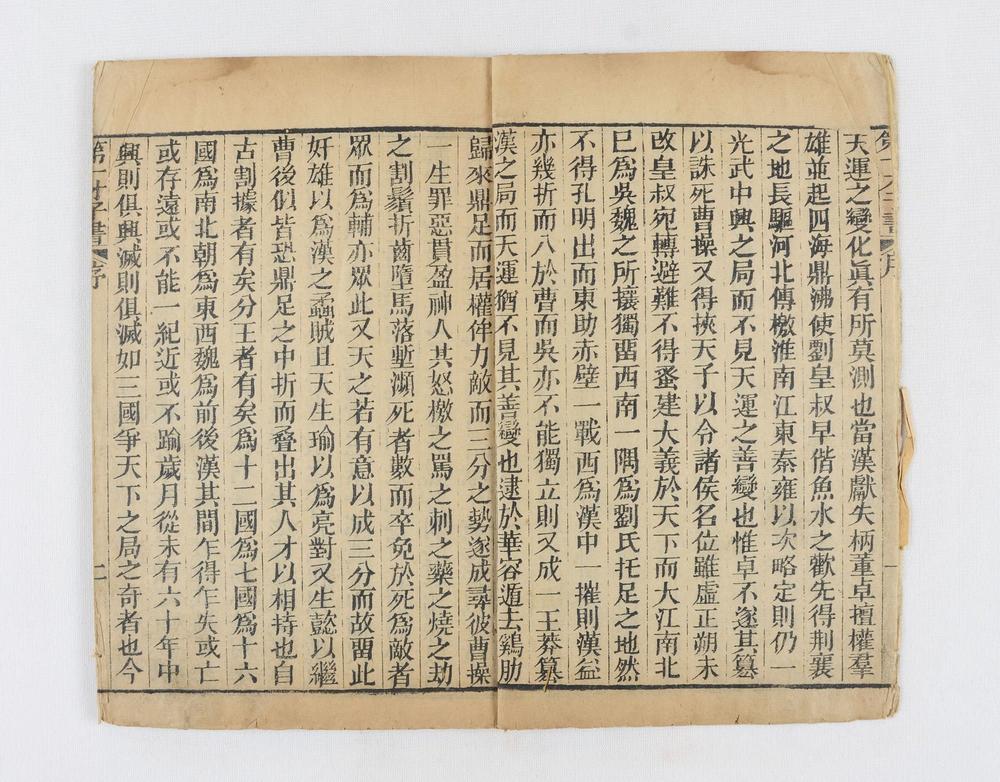 天運之變化眞有所莫測也當漢獻失柄董卓擅權羣
雄並起四海鼎沸使劉皇叔早偕魚水之歡先得荆襄
之地長驅河北傳檄淮南江東秦雍以次略定則仍一
光武中興之局而不見天運之善變也惟卓不遂其篡
以誅死曹操又得挾天子以令諸侯名位雖虛正朔未
改皇叔宛轉避難不得蚤建大義於天下而大江南北
已爲吳魏之所攘獨畱西南一隅爲劉氏托足之地然
不得孔明出而東助赤壁一戰西爲漢中一摧則漢益
亦幾折而入於曹而吳亦不能獨立則又成一王莽篡
漢之局而天運猶不見其善變也逮於華容遁去鷄肋
歸來鼎足而居權侔力敵而三分之勢遂成尋彼曹操
一生罪惡貫盈神人共怒檄之罵之刺之藥之燒之劫
之割鬚折齒墮馬落塹瀕死者數而卒免於死爲敵者
眾而爲輔亦眾此又天之若有意以成三分而故畱此
奸雄以爲漢之蟊賊且天生瑜以爲亮對又生懿以繼
曹後似皆恐鼎足之中折而叠出其人才以相持也自
古割據者有矣分王者有矣爲十二國爲七國爲十六
國爲南北朝爲東西魏爲前後漢其間乍得乍失或亡
或存遠或不能一紀近或不踰歲月從未有六十年中
興則俱興滅則俱滅如三國爭天下之局之奇者也今
第一才子書 序 二